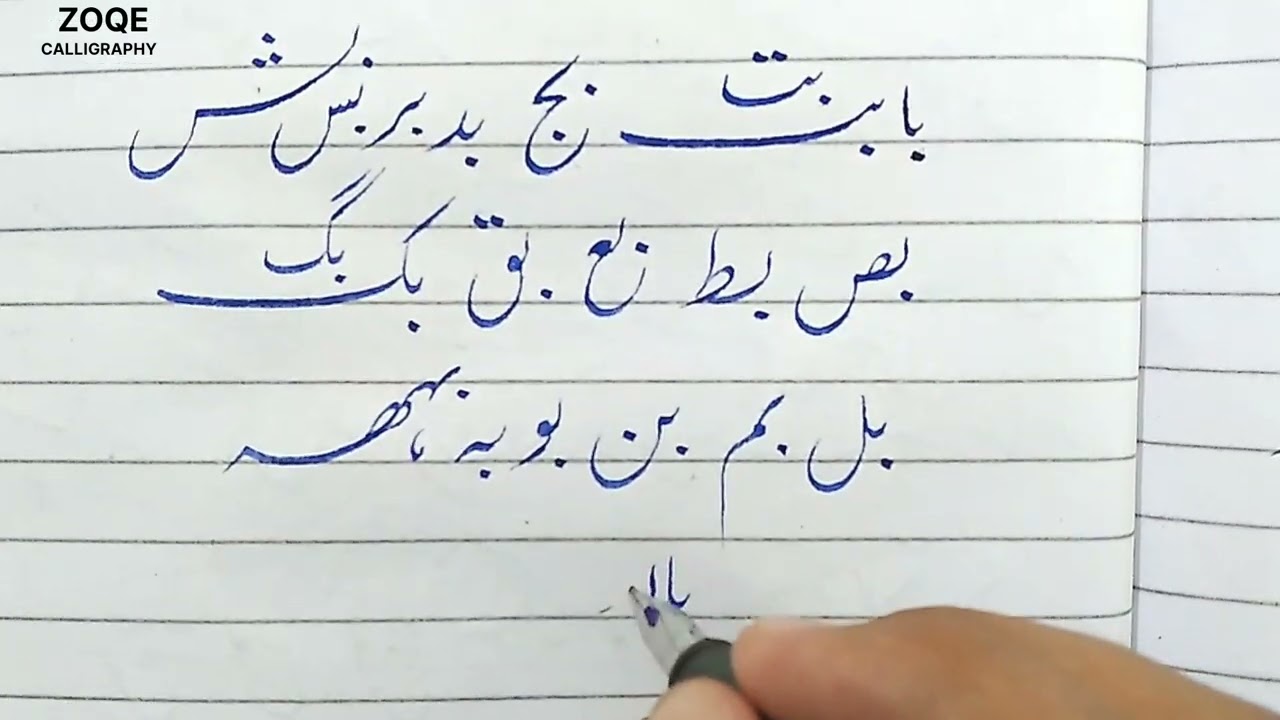 ZOQE
CALLIGRAPHY
با بب بت نج بد بر نس نش
بص بط نع بق بک بگ
بل بم بن بو بہ